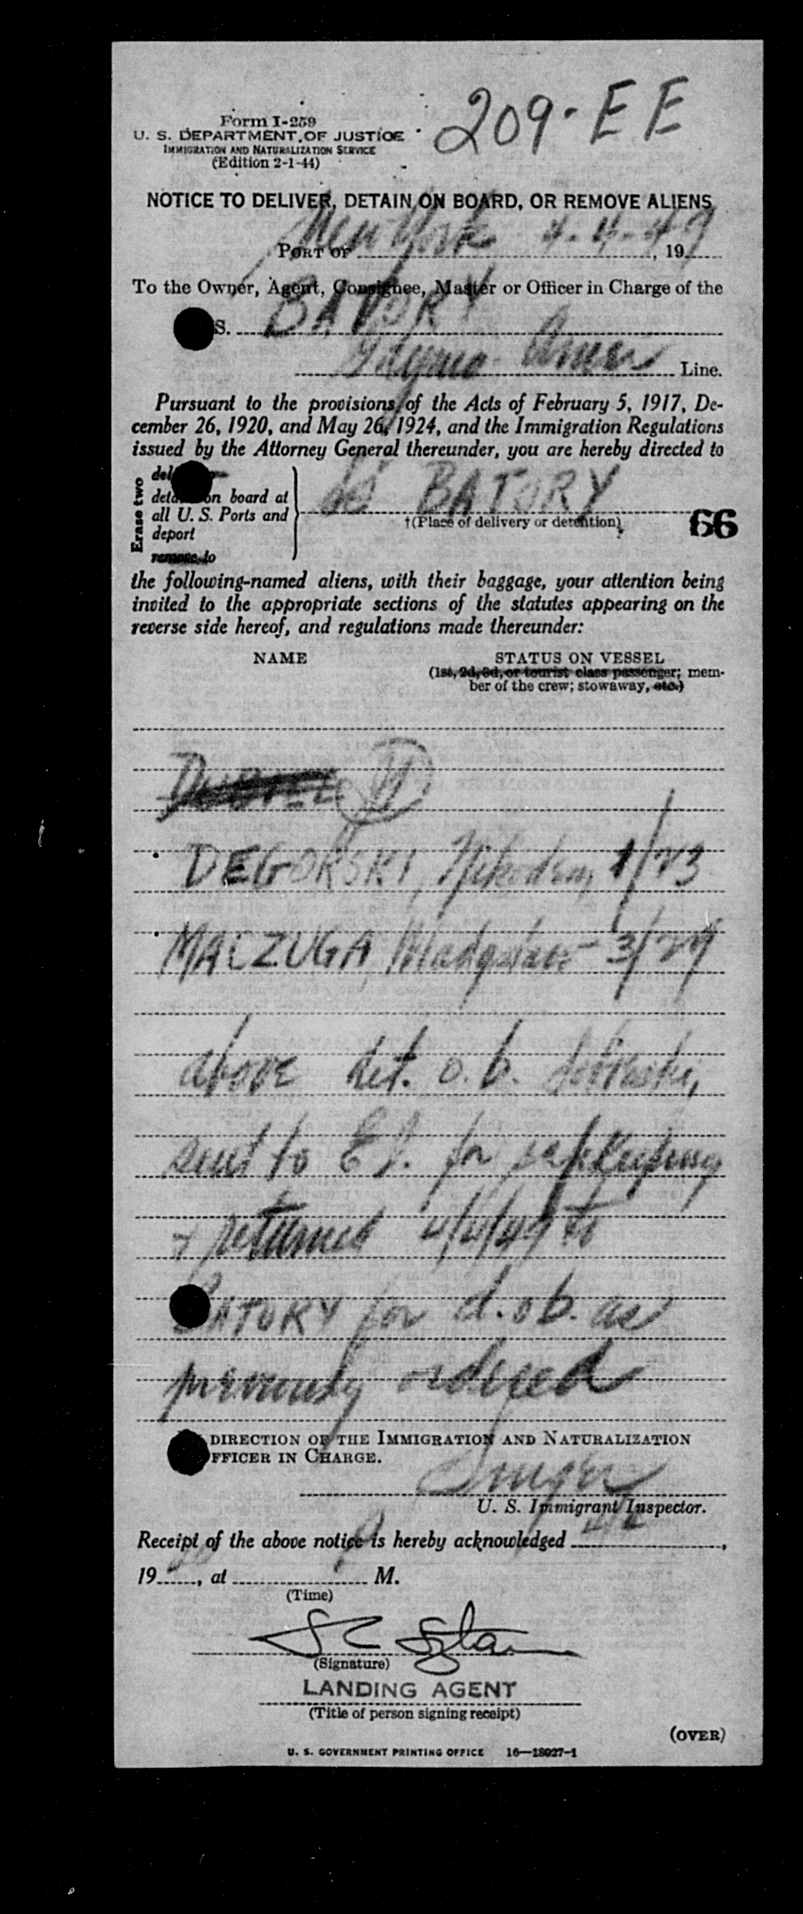 209-EE
Form I-259
U. S. DEPARTMENT OF JUSTICE
IMMIGRATION AND NATURALIZATION SERVICE
(Edition 2-1-44)
NOTICE TO DELIVER, DETAIN ON BOARD, OR REMOVE ALIENS
PORT OF New York 4-4-49, 19
To the Owner, Agent, Consignee, Master or Officer in Charge of the
S. BATORY
Gdynia Amer Line.
Pursuant to the provisions of the Acts of February 5, 1917, De-
cember 26, 1920, and May 26, 1924, and the Immigration Regulations
issued by the Attorney General thereunder, you are hereby directed to
Erase two
detain on board at
all U. S. Ports and
deport
remove to
SS BATORY
†(Place of delivery or detention)
66
the following-named aliens, with their baggage, your attention being
invited to the appropriate sections of the statutes appearing on the
reverse side hereof, and regulations made thereunder:
NAME STATUS ON VESSEL
(1st, 2d, 3d, or tourist class passenger; mem-
ber of the crew; stowaway, etc.)
DEGORSKI, Nikodem 1/23
MALZUGA, Wladyslaw 3/29
above det. o.b.
sent to E I. for safekeeping
+ returned 4/4/49 to
BATORY for d.o b. as
previously ordered
DIRECTION OF THE IMMIGRATION AND NATURALIZATION
OFFICER IN CHARGE.
U. S. Immigrant Inspector.
Receipt of the above notice is hereby acknowledged ,
19 , at M.
(Time)
(Signature)
LANDING AGENT
(Title of person signing receipt)
(OVER)
U. S. GOVERNMENT PRINTING OFFICE 16—18027-1